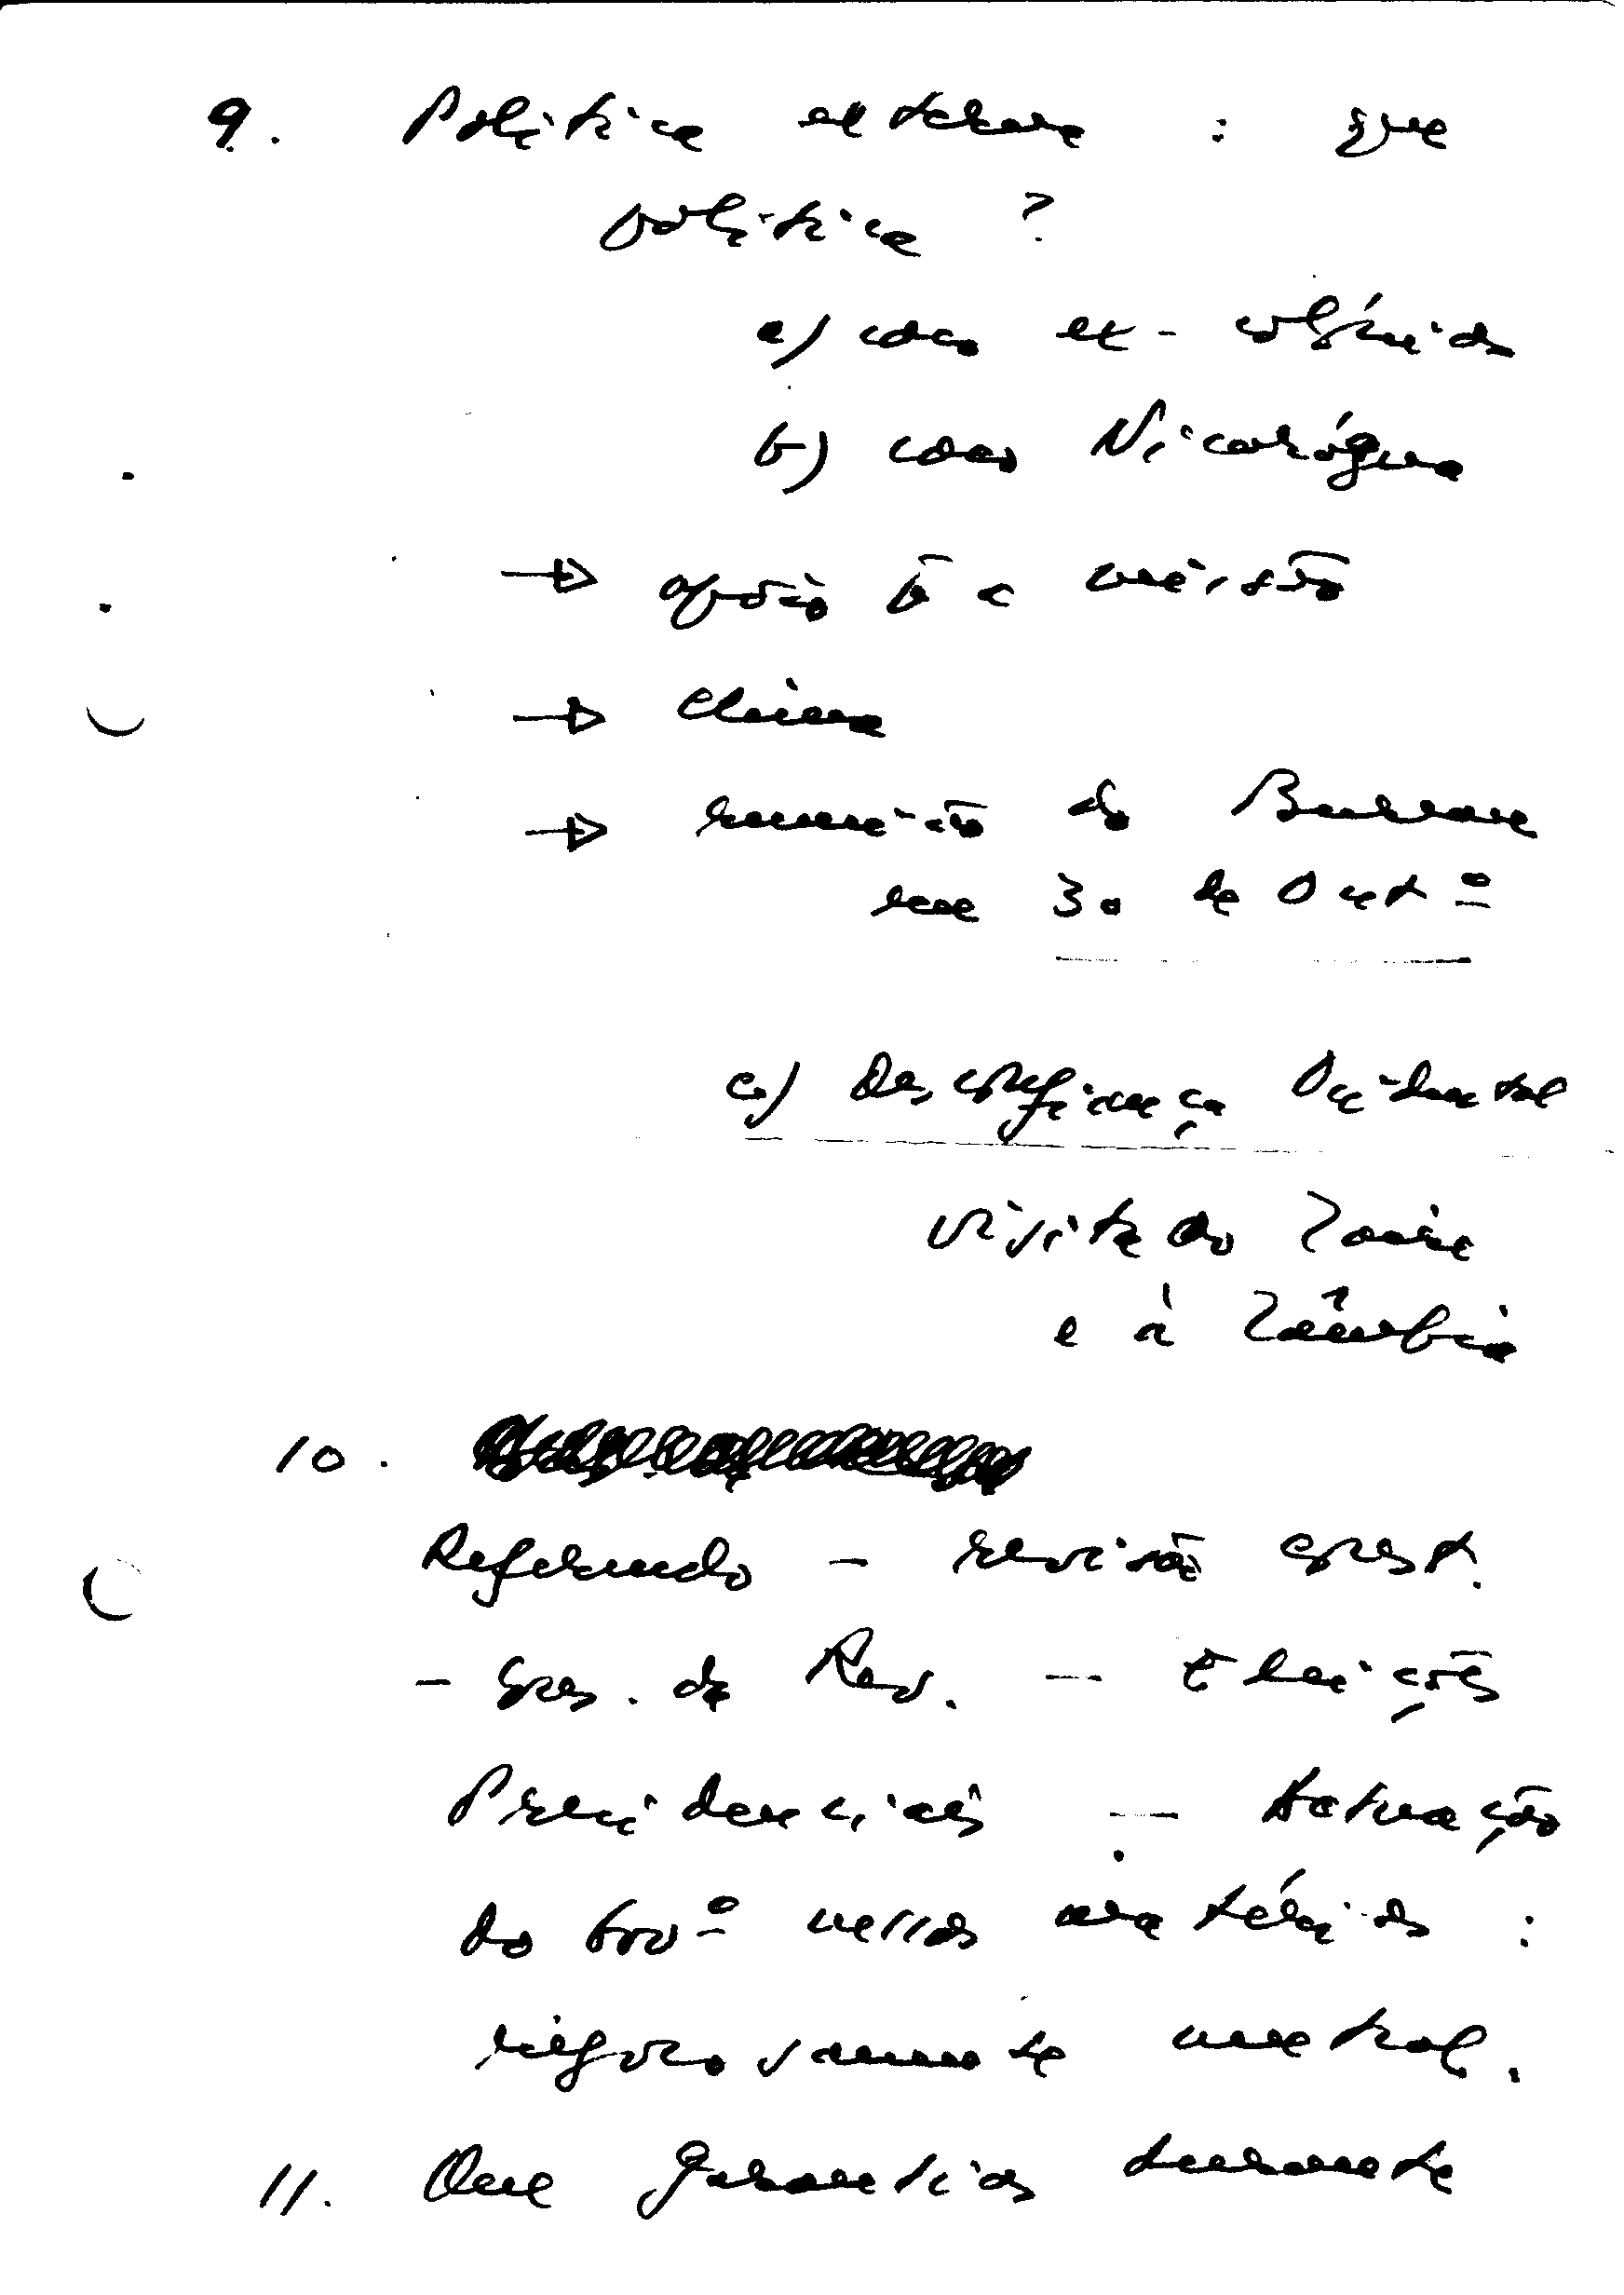 9. Política externa : que
política ?
a) com ex-colónias
b) com Nicarágua
→ apoio à
→ China
→ reunião do Bureau
em 30 de Outº
c) Desconfiança Ocidental
visita do Zaire
e à Zâmbia
10.
Referendo - revisão const.
- Cons. da Rev. - Eleições
Presidenciais - Actuação
do Govº nessas matérias :
rigorosamente neutral.
11. Que garantias durante